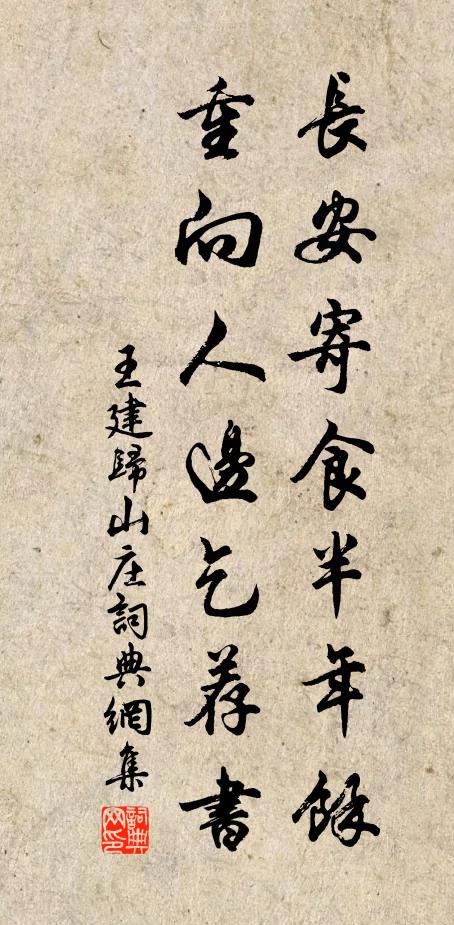 長安寄食半年餘
重向人邊乞荐書
王建歸山庄詞典網集
詞典网印